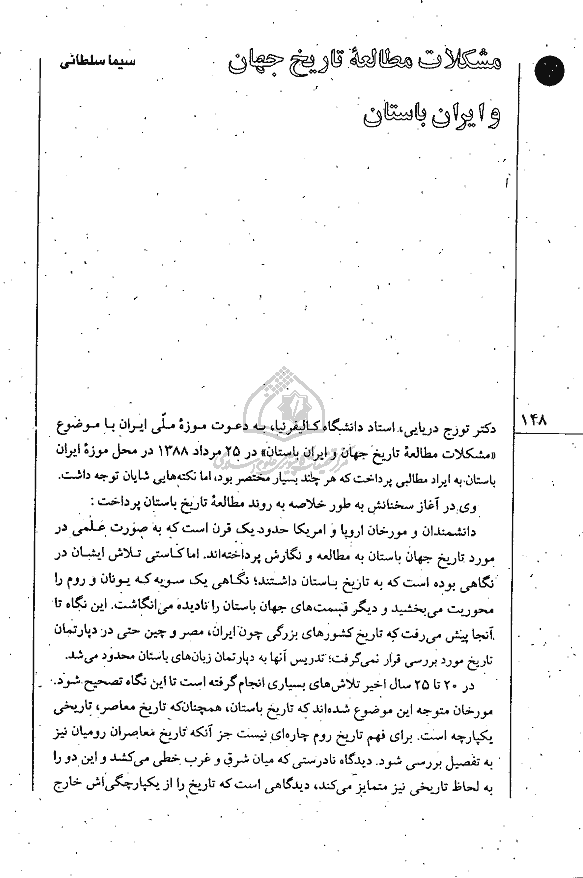 مشکلات مطالعهٔ تاریخ جهان
و ایران باستان
سیما سلطانی
۱۴۸
دکتر تورج دریایی، استاد دانشگاه کالیفرنیا، به دعوت موزهٔ ملّی ایران با موضوع
«مشکلات مطالعهٔ تاریخ جهان و ایران باستان» در ۲۵ مرداد ۱۳۸۸ در محل موزهٔ ایران
باستان به ایراد مطالبی پرداخت که هر چند بسیار مختصر بود، اما نکته‌هایی شایان توجه داشت.
وی در آغاز سخنانش به طور خلاصه به روند مطالعهٔ تاریخ باستان پرداخت :
دانشمندان و مورخان اروپا و امریکا حدود یک قرن است که به صورت علمی در
مورد تاریخ جهان باستان به مطالعه و نگارش پرداخته‌اند. اما کاستی تلاش ایشان در
نگاهی بوده است که به تاریخ باستان داشتند؛ نگاهی یک سویه که یونان و روم را
محوریت می‌بخشید و دیگر قسمت‌های جهان باستان را نادیده می‌انگاشت. این نگاه تا
آنجا پیش می‌رفت که تاریخ کشورهای بزرگی چون ایران، مصر و چین حتی در دپارتمان
تاریخ مورد بررسی قرار نمی‌گرفت؛ تدریس آنها به دپارتمان زبان‌های باستان محدود می‌شد.
در ۲۰ تا ۲۵ سال اخیر تلاش‌های بسیاری انجام گرفته است تا این نگاه تصحیح شود.
مورخان متوجه این موضوع شده‌اند که تاریخ باستان، همچنانکه تاریخ معاصر، تاریخی
یکپارچه است. برای فهم تاریخ روم چاره‌ای نیست جز آنکه تاریخ معاصران رومیان نیز
به تفصیل بررسی شود. دیدگاه نادرستی که میان شرق و غرب خطی می‌کشد و این دو را
به لحاظ تاریخی نیز متمایز می‌کند، دیدگاهی است که تاریخ را از یکپارچگی‌اش خارج